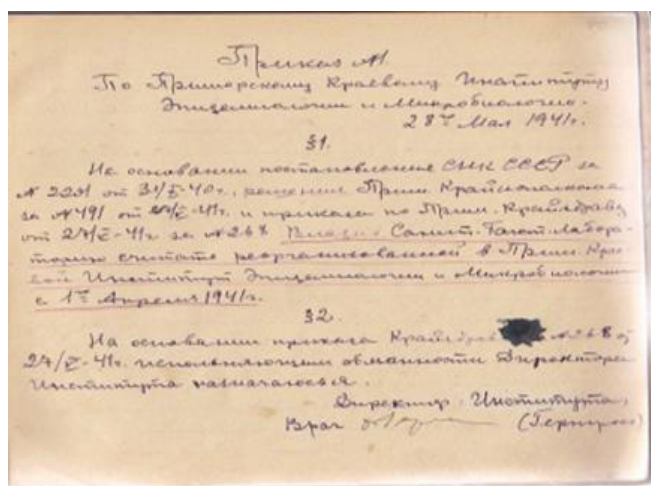 Приказ №1.
По Приморскому Краевому Институту
Эпидемиологии и Микробиологии.
28го Мая 1941г.
§1.
На основании постановления СНК СССР за
№ 2221 от 31/X-40г., решения Прим. Крайисполкома
за №491 от и приказа по Прим. Крайздраву
от 27/V-41г за №268 Санит. Бакт. Лабора-
торию считать реорганизованной в Прим. Крае-
вой Институт Эпидемиологии и Микробиологии
с 1го Апреля 1941г.
§2.
На основании приказа Крайздрава №268 от
27/V-41г. исполняющим обязанности Директора
Института назначаюсь я.
Директор Института,
Врач